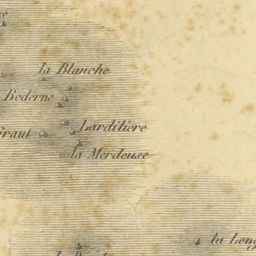 la Blanche
Rederne
Lardiliere
la Merdeuse
la Long